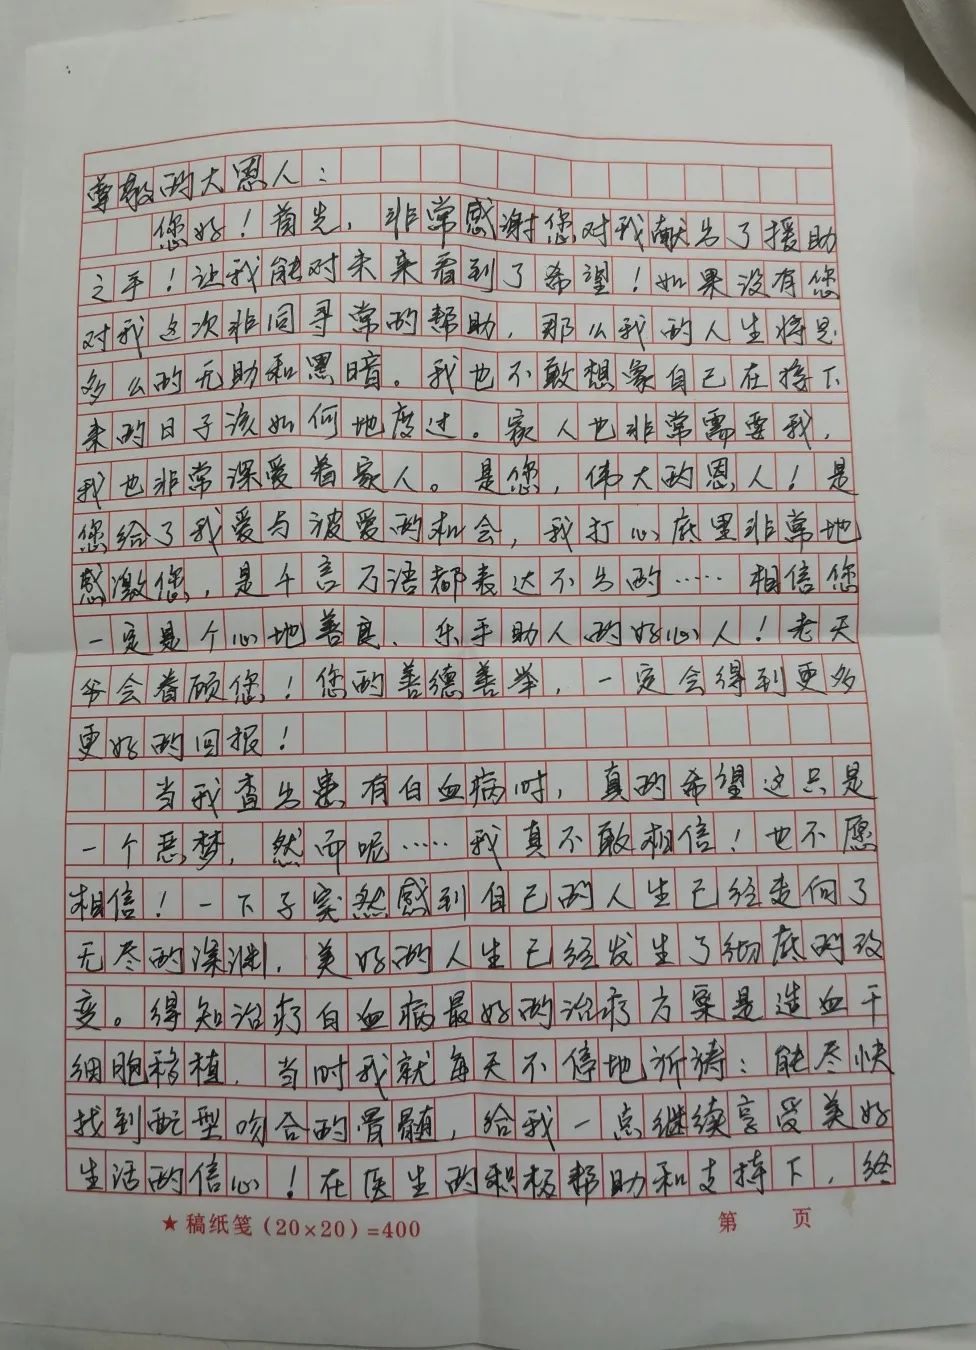 尊敬的大恩人：
您好！首先，非常感谢您对我献出了援助
之手！让我能对未来看到了希望！如果没有您
对我这次非同寻常的帮助，那么我的人生将是
多么的无助和黑暗。我也不敢想象自己在接下
来的日子该如何地度过。家人也非常需要我，
我也非常深爱着家人。是您，伟大的恩人！是
您给了我爱与被爱的机会，我打心底里非常地
感激您，是千言万语都表达不出的……相信您
一定是个心地善良、乐于助人的好心人！老天
爷会眷顾您！您的善德善举，一定会得到更多
更好的回报！
当我查出患有白血病时，真的希望这只是
一个恶梦，然而呢……我真不敢相信！也不愿
相信！一下子突然感到自己的人生已经走向了
无尽的深渊，美好的人生已经发生了彻底的改
变。得知治疗白血病最好的治疗方案是造血干
细胞移植，当时我就每天不停地祈祷：能尽快
找到配型吻合的骨髓，给我一点继续享受美好
生活的信心！在医生的积极帮助和支持下，终
★稿纸笺(20×20)=400 第 页